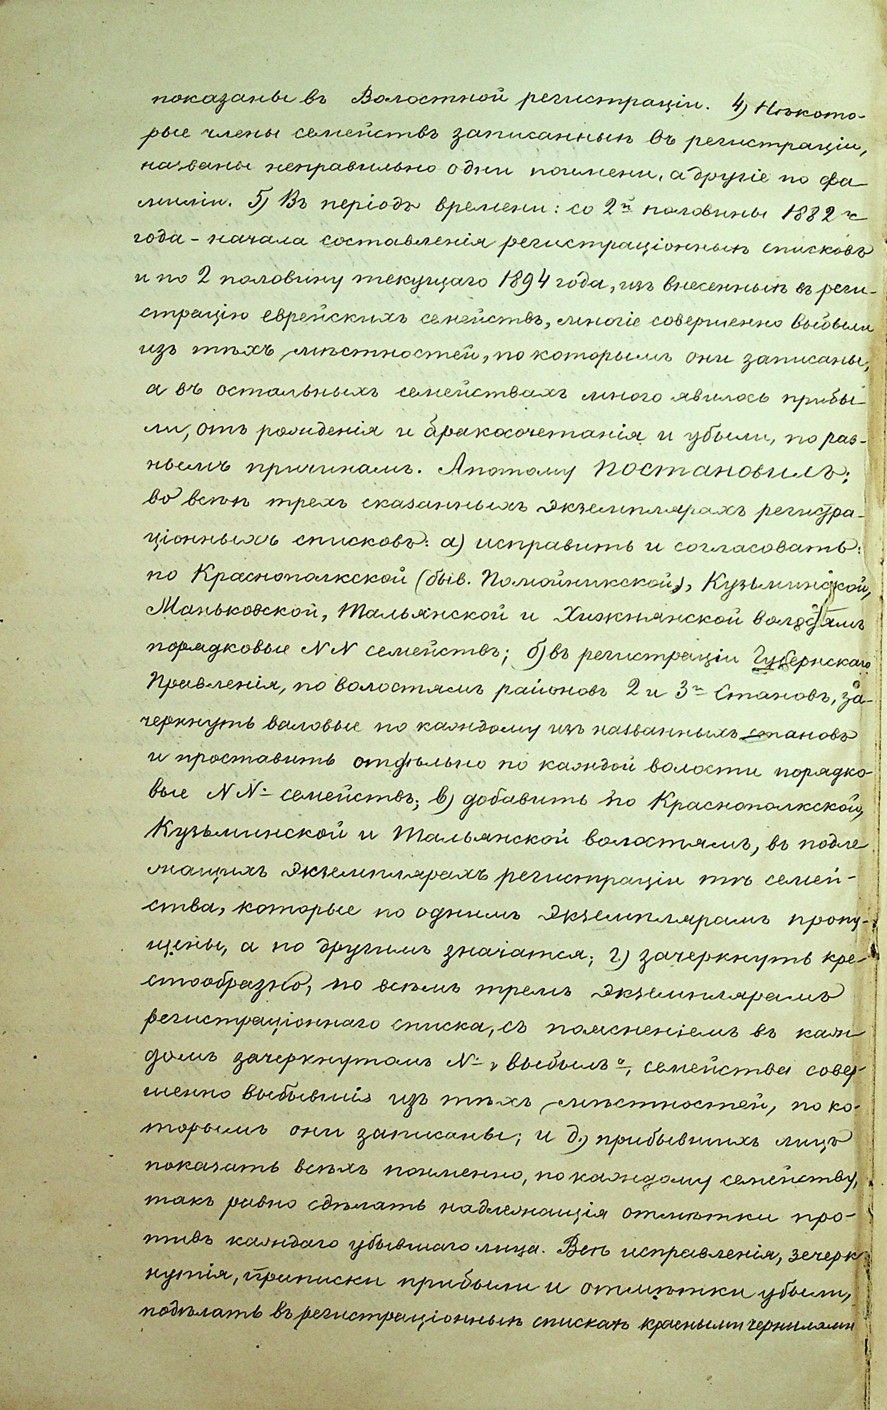 показаны въ Волостной регистраціи. 4) Нѣкото-
рые члены семействъ записанныхъ въ регистраціи,
названы неправильно одни поимени, а другіе по фа-
миліи. 5) Въ періодъ времени: со 2й половины 1882 го
года - начала составленія регистраціонныхъ списковъ
и по 2 половину текущаго 1894 года, изъ внесенныхъ въ реги-
страцію еврейскихъ семействъ, многіе совершенно выбыли
изъ тѣхъ мѣстностей, по которымъ они записаны,
а въ остальныхъ семействахъ много явилось прибы-
ли, отъ рожденія и бракосочетанія и убыли, по раз-
нымъ причинамъ. А потому постановилъ:
во всѣхъ трехъ сказанныхъ экземплярахъ регистра-
ціонныхъ списковъ: а) исправить и согласовать:
по Краснополкской (быв. Помойникской), Кузьминской,
Маньковской, Тальянской и Хижнянской волостямъ
порядковые NN семействъ; б) въ регистраціи Губернскаго
Правленія, по волостямъ районовъ 2 и 3го Становъ, за-
черкнуть валовые по каждому изъ названныхъ становъ
и проставить отдѣльно по каждой волости порядко-
вые NN семействъ; в) добавить по Краснополкской,
Кузьминской и Тальянской волостямъ, въ подле-
жащихъ экземплярахъ регистраціи тѣ семей-
ства, которые по однимъ экземплярамъ пропу-
щены, а по другимъ значатся; г) зачеркнуть кре-
стообразно, по всѣмъ тремъ экземплярамъ
регистраціоннаго списка, съ поясненіемъ въ каж-
домъ зачеркнутомъ № „выбылъ“, семейства совер-
шенно выбывшія изъ тѣхъ мѣстностей, по ко-
торымъ они записаны; и д) прибывшихъ лицъ
показать всѣхъ поименно, по каждому семейству,
такъ равно сдѣлать надлежащія отмѣтки про-
тивъ каждаго убывшаго лица. Всѣ исправленія, зачерк
нутія, приписки прибыли и отмѣтки убыли,
подѣлать въ регистраціонныхъ спискахъ красными чернилами